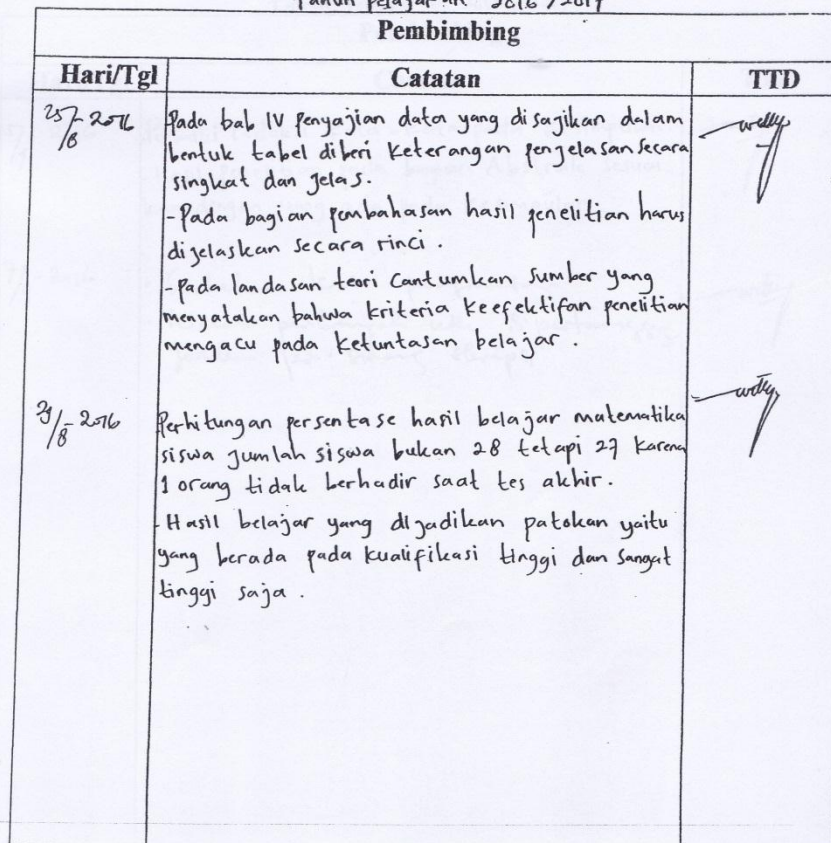 Tahun Pelajaran 2016/2017
Pembimbing
Hari/Tgl Catatan TTD
25/8-2016 Pada bab IV Penyajian data yang disajikan dalam
bentuk tabel diberi keterangan penjelasan secara
singkat dan jelas.
-Pada bagian pembahasan hasil penelitian harus
dijelaskan secara rinci.
-pada landasan teori Cantumkan Sumber yang
menyatakan bahwa kriteria keefektifan penelitian
mengacu pada ketuntasan belajar.
/8-2016 Perhitungan persentase hasil belajar matematika
siswa jumlah siswa bukan 28 tetapi 27 karena
1 orang tidak berhadir saat tes akhir.
-Hasil belajar yang dijadikan patokan yaitu
yang berada pada kualifikasi tinggi dan sangat
tinggi saja.